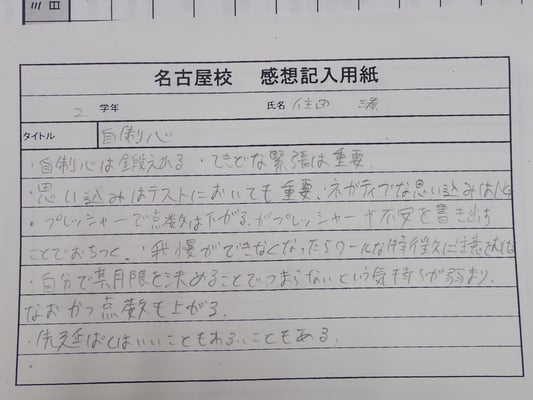 名古屋校 感想記入用紙
2 学年 氏名 住田 湊
タイトル 自制心
・自制心は鍛えれる ・てきどな緊張は重要。
・思い込みはテストにおいても重要、ネガティブな思い込みは
・プレッシャーで点数は下がる。がプレッシャーや不安を書き出す
ことでおちつく。・我慢ができなくなったらクールな特徴に注意を
・自分で期限を決めることでつまらないという気持ちが弱まり、
なおかつ点数も上がる。
・先延ばしはいいこともわるいこともある。
・